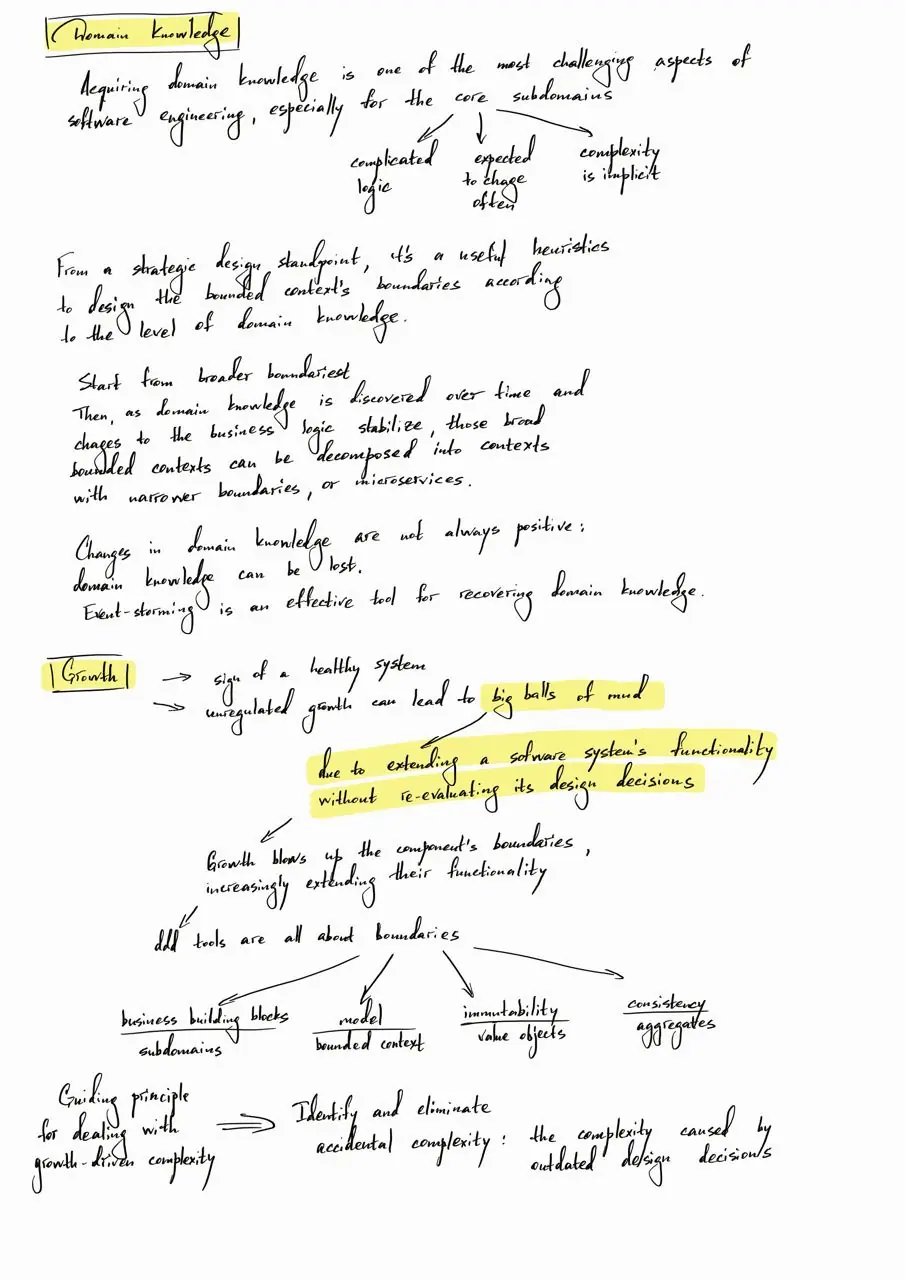 Domain Knowledge
Acquiring domain knowledge is one of the most challenging aspects of
software engineering, especially for the core subdomains
complicated
logic
expected
to chage
often
complexity
is implicit
From a strategic design standpoint, it's a useful heuristics
to design the bounded context's boundaries according
to the level of domain knowledge.
Start from broader boundariest
Then, as domain knowledge is discovered over time and
chages to the business logic stabilize, those broad
bounded contexts can be decomposed into contexts
with narrower boundaries, or microservices.
Changes in domain knowledge are not always positive:
domain knowledge can be lost.
Event-storming is an effective tool for recovering domain knowledge.
Growth → sign of a healthy system
→ unregulated growth can lead to big balls of mud
due to extending a sofware system's functionality
without re-evaluating its design decisions
Growth blows up the component's boundaries,
increasingly extending their functionality
ddd tools are all about boundaries
business building blocks
subdomains
model
bounded context
immutability
value objects
consistency
aggregates
Guiding principle
for dealing with
growth-driven complexity
⇒ Identify and eliminate
accidental complexity: the complexity caused by
outdated design decisions